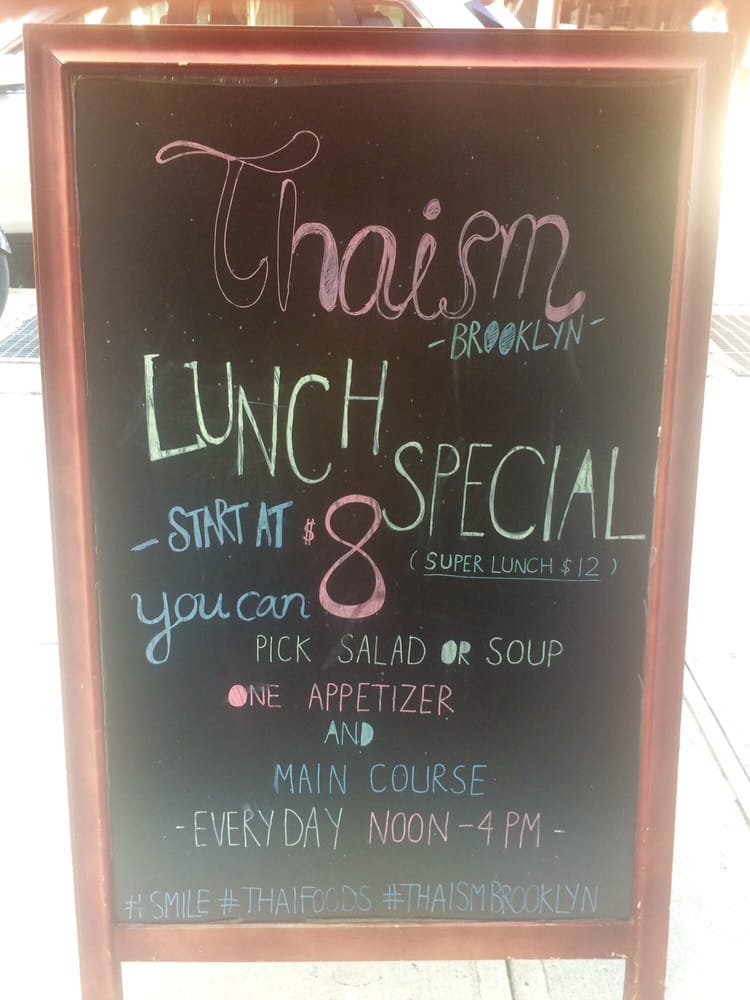 Thaism
-BROOKLYN-
LUNCH
SPECIAL
-START AT $8
(SUPER LUNCH $12)
you can
PICK SALAD OR SOUP
ONE APPETIZER
AND
MAIN COURSE
-EVERYDAY NOON-4PM-
#SMILE #THAIFOODS #THAISMBROOKLYN